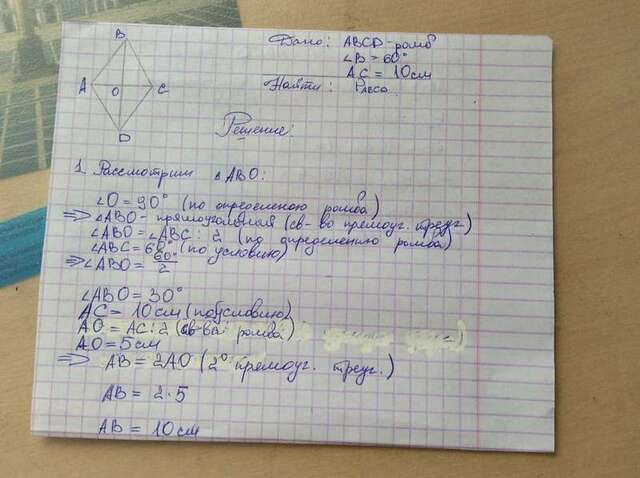 B
A
O
C
D
Дано: ABCD-ромб
∠B = 60°
AC = 10см
Найти: Pавсд
Решение:
1. Рассмотрим △ABO:
∠O = 90° (по определению ромба)
⇒ ∠ABO - прямоугольная (св-во прямоуг. треуг)
∠ABO = ∠ABC : 2 (по определению ромба)
∠ABC = 60° (по условию)
⇒ ∠ABO = 60°/2
∠ABO = 30°
AC = 10см (по условию)
AO = AC : 2 (св-ва ромба)
AO = 5см
⇒ AB = 2AO (2° прямоуг. треуг.)
AB = 2·5
AB = 10см